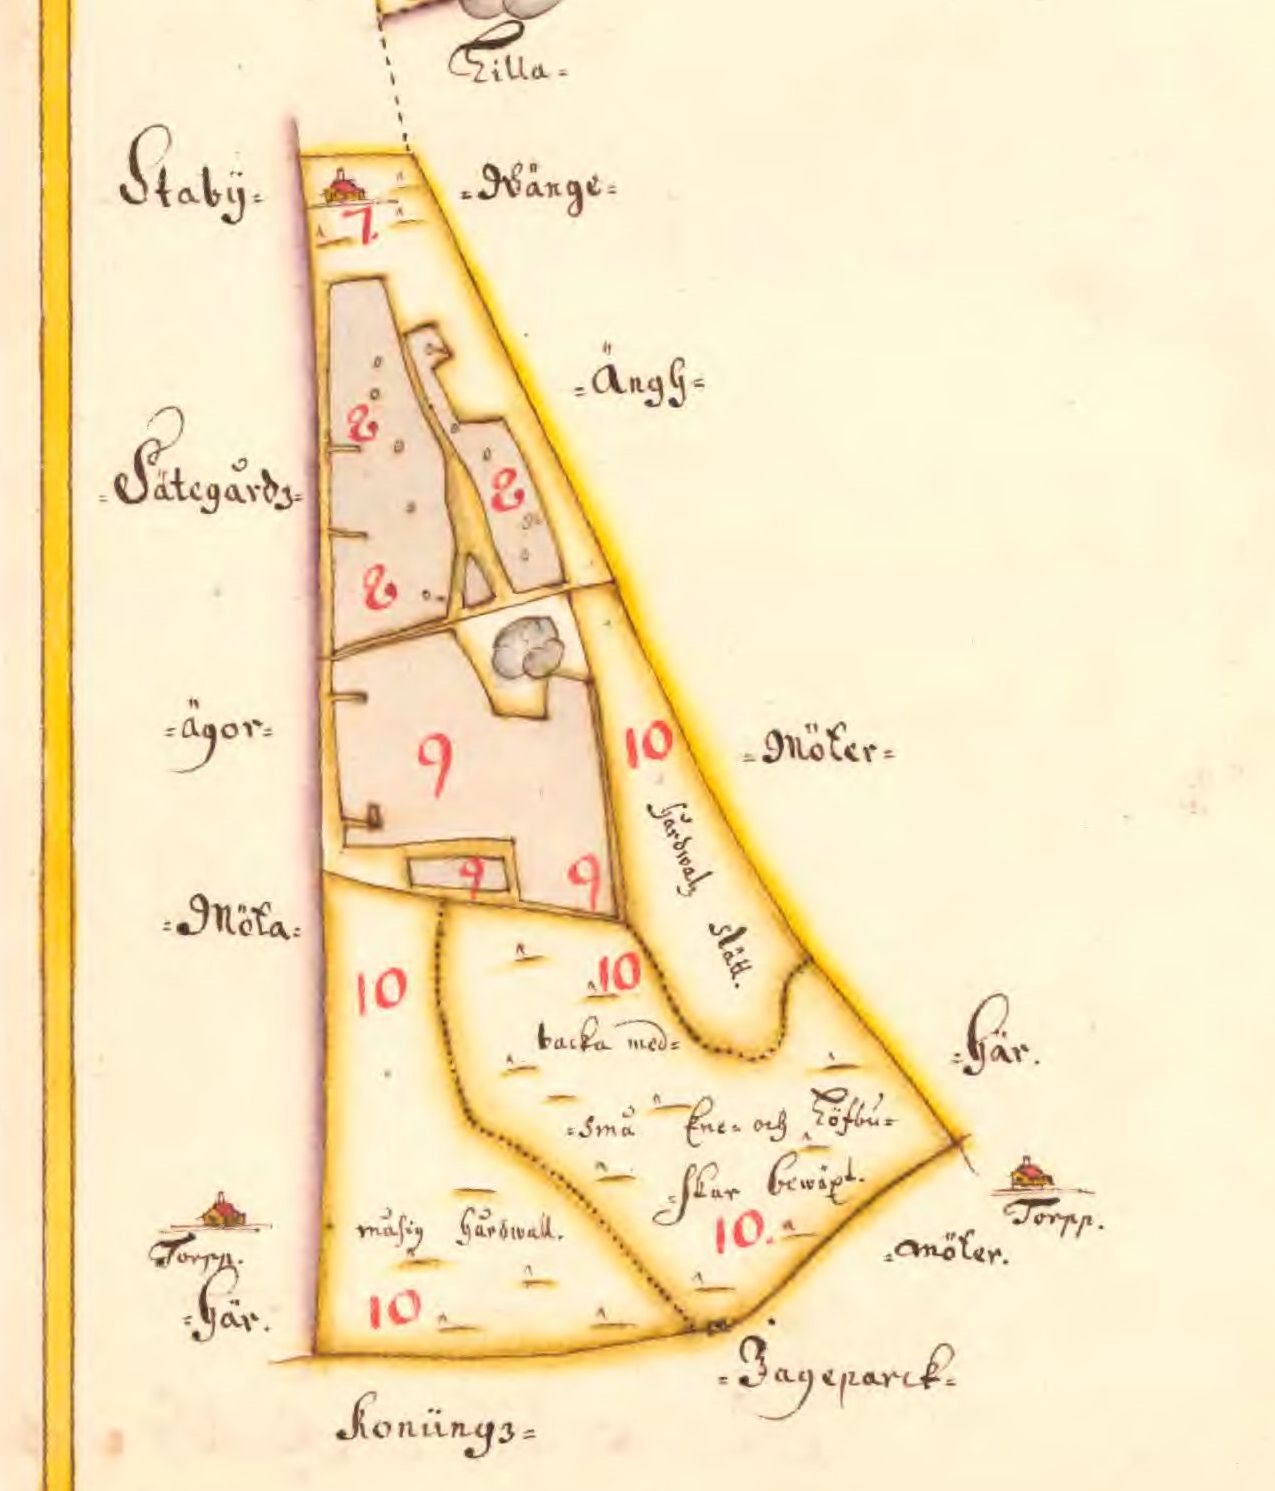 Lilla=
Stabÿ=
=Wänge=
7.
=Ängh=
8
8
=Sätegårdz=
8
=ägor=
9
10
=Möter=
hårdwalz
slätt.
9
9
=Möta=
10
10
backa med=
=här.
=små Ene= och Löfbu=
=skar bewäxt.
10.
Torpp.
=möter.
måsig hårdwall.
Torpp.
=här.
10
=Jageparck=
Konüngz=